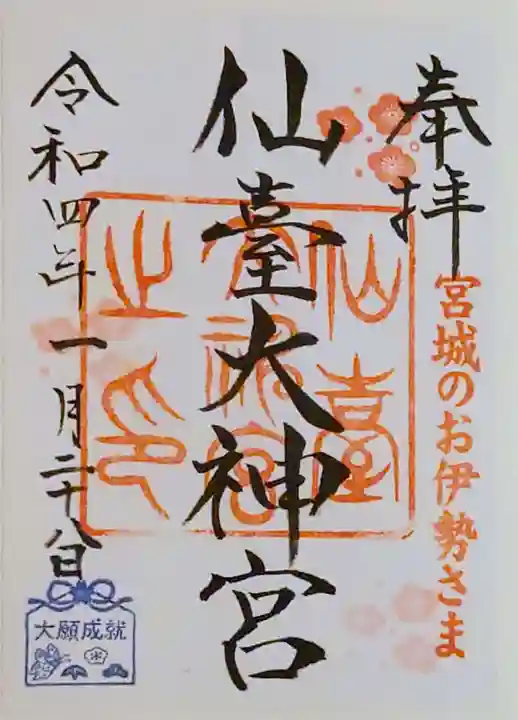 奉拝
宮城のお伊勢さま
仙臺大神宮
仙臺大神宮之印
令和四年一月二十八日
大願成就